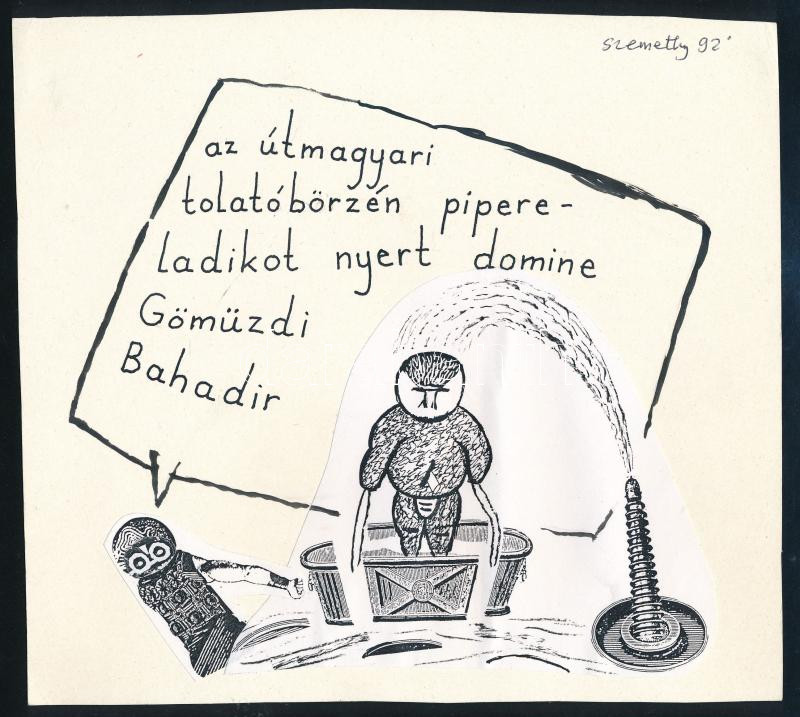 szemethy 92'
az útmagyari
tolatóbörzén pipere-
ladikot nyert domine
Gömüzdi
Bahadir